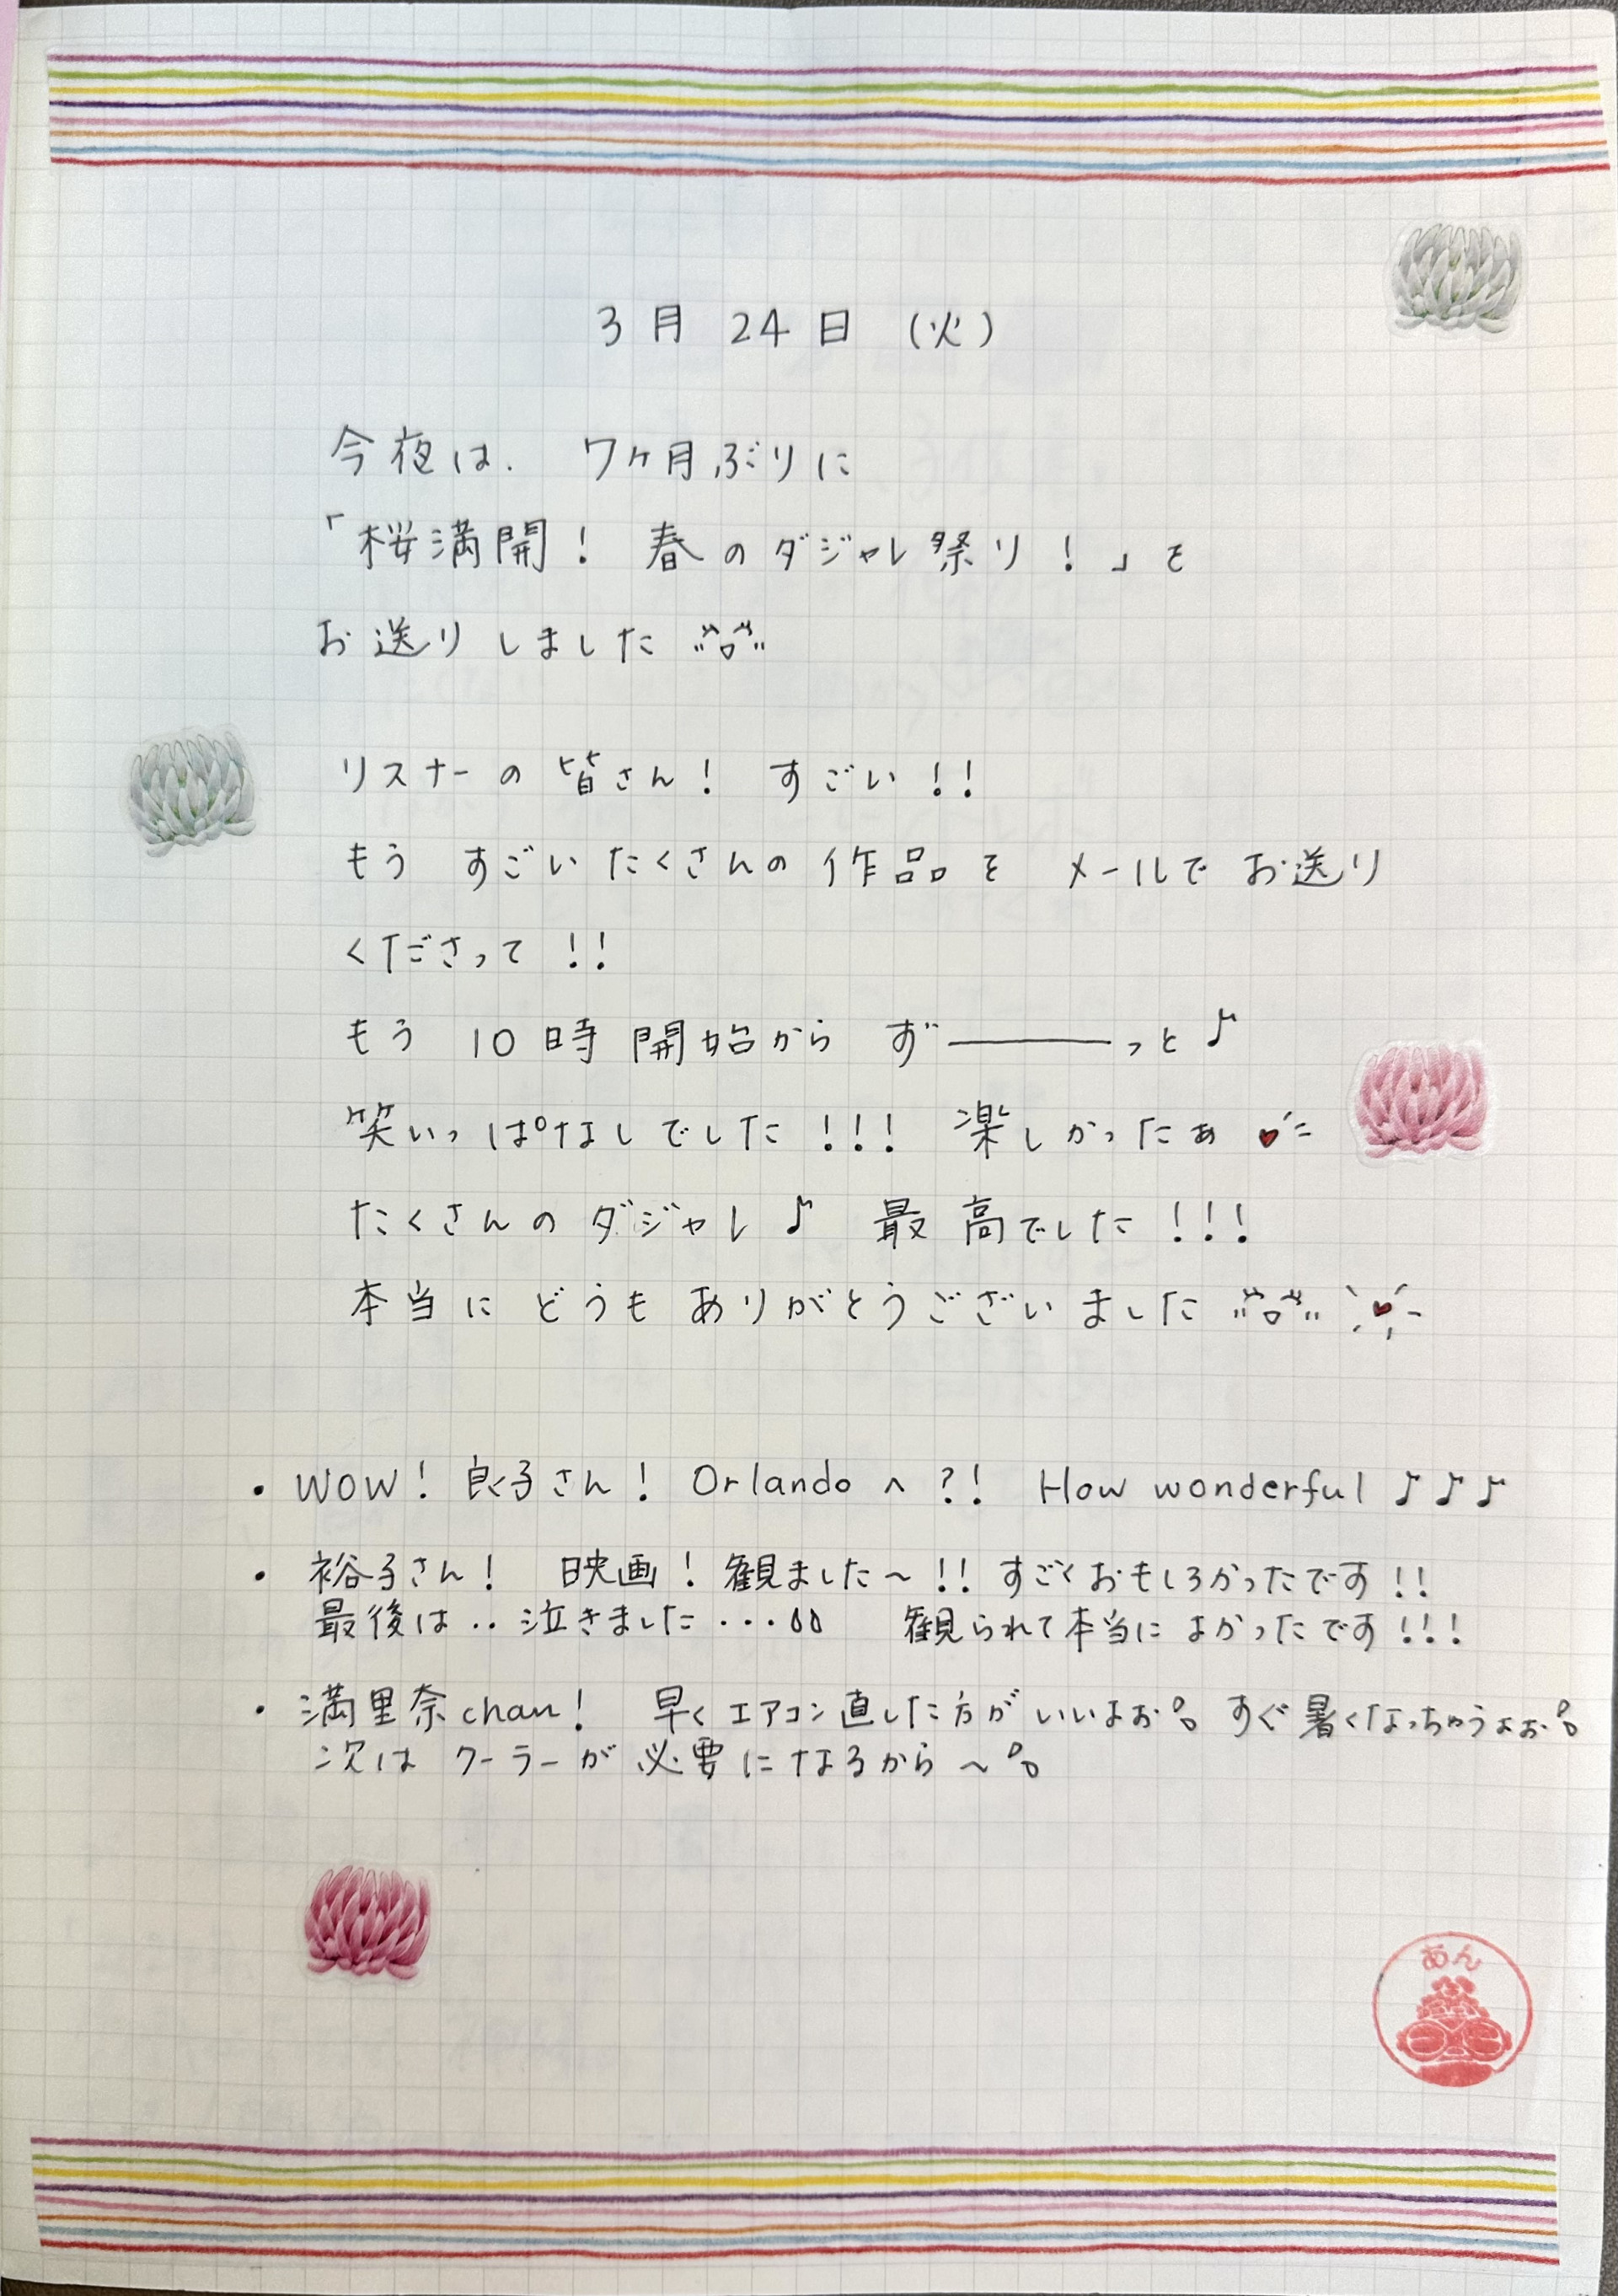 3月24日（火）
今夜は、7ヶ月ぶりに
「桜満開！ 春のダジャレ祭り！」を
お送りしました
リスナーの皆さん！ すごい！！
もう すごいたくさんの作品を メールでお送り
くださって！！
もう 10時開始から ずーーーっと♪
笑いっぱなしでした！！！ 楽しかったぁ♥
たくさんのダジャレ♪ 最高でした！！！
本当に どうも ありがとうございました♥
・WOW！ 良子さん！ Orlandoへ？！ How wonderful♪♪♪
・裕子さん！ 映画！観ました〜！！すごくおもしろかったです！！
最後は‥泣きました・・・ 観られて本当に よかったです！！！
・満里奈chan！ 早くエアコン直した方がいいよぉ。すぐ暑くなっちゃうよぉ。
次はクーラーが必要になるから〜。
あん